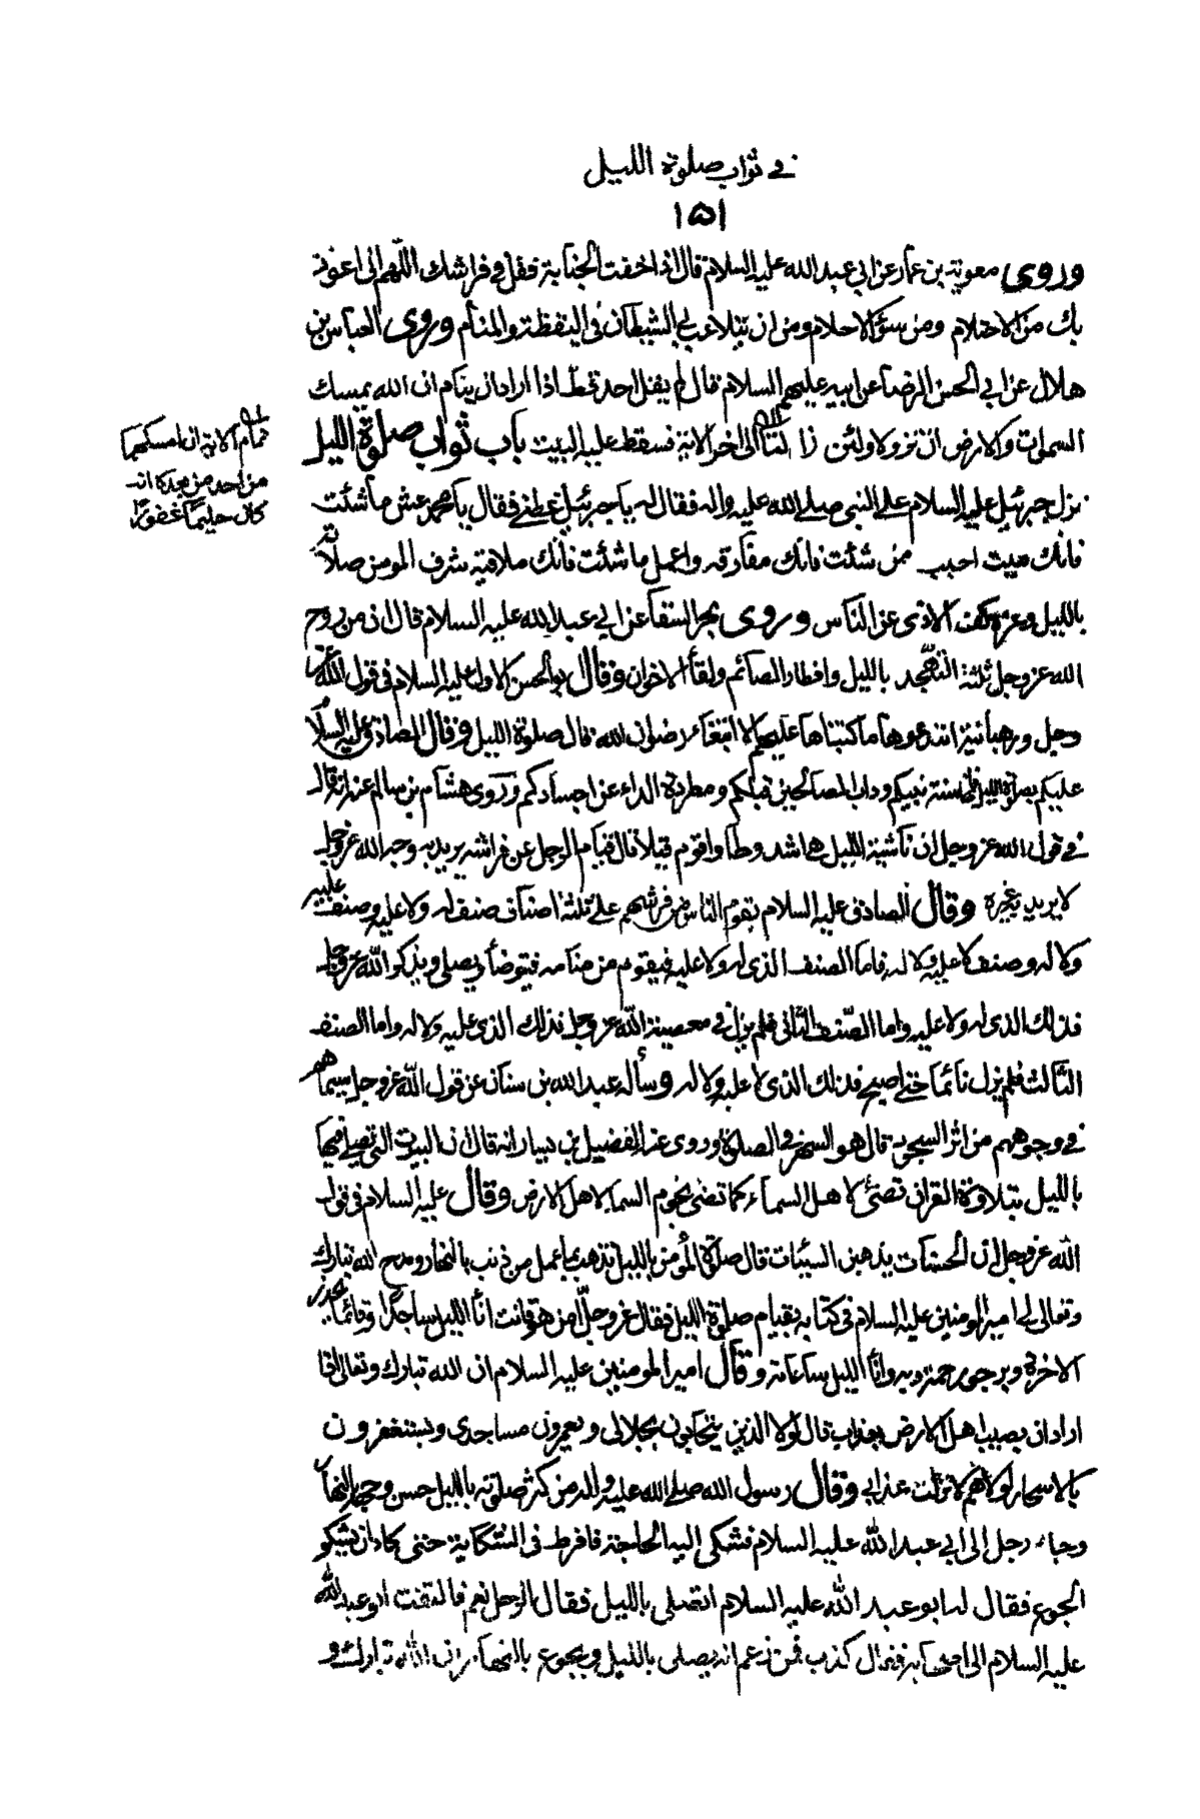 في ثواب صلوة الليل
۱۵۱
وروى معوية بن عمار عن ابي عبد الله عليه السلام قال اذا خفت الجنابة فقل في فراشك اللهم اني اعوذ
بك من الاحتلام ومن سوء الاحلام ومن ان يتلاعب بي الشيطان في اليقظة والمنام وروى العباس بن
هلال عن ابي الحسن الرضا عن ابيه عليهم السلام قال لم يقل احد قط اذا اراد ان ينام ان الله يمسك
السموات والارض ان تزولا ولئن زالتا الى اخر الاية فسقط عليه البيت باب ثواب صلوة الليل
تمام الاية ان امسكهما
من احد من بعده انه
كان حليما غفورا
نزل جبرئيل عليه السلام على النبي صلى الله عليه واله فقال له يا جبرئيل عظني فقال يا محمد عش ما شئت
فانك ميت احبب من شئت فانك مفارقه واعمل ما شئت فانك ملاقيه شرف المومن صلاته
بالليل وعزه كف الاذى عن الناس وروى بحر السقا عن ابي عبد الله عليه السلام قال ان من روح
الله عز وجل ثلثة التهجد بالليل وافطار الصائم ولقاء الاخوان وقال ابو الحسن الاول عليه السلام في قول الله عز
وجل ورهبانية ابتدعوها ما كتبناها عليهم الا ابتغاء رضوان الله قال صلوة الليل وقال الصادق عليه السلام
عليكم بصلوة الليل فانها سنة نبيكم وداب الصالحين قبلكم ومطردة الداء عن اجسادكم وروى هشام بن سالم عنه انه قال
في قول الله عز وجل ان ناشئة الليل هي اشد وطا واقوم قيلا قال قيام الرجل عن فراشه يريد به وجه الله عز وجل
لا يريد به غيره وقال الصادق عليه السلام يقوم الناس من فرشهم على ثلثة اصناف صنف له ولا عليه وصنف عليه
ولا له وصنف لا عليه ولا له فاما الصنف الذي له ولا عليه فيقوم من منامه فيتوضأ ويصلي ويذكر الله عز وجل
فذلك الذي له ولا عليه واما الصنف الثاني فلم يزل في معصية الله عز وجل فذلك الذي عليه ولا له واما الصنف
الثالث فلم يزل نائما حتى اصبح فذلك الذي لا عليه ولا له وسأله عبد الله بن سنان عن قول الله عز وجل سيماهم
في وجوههم من اثر السجود قال هو السهر في الصلوة وروى عنه الفضيل بن يسار انه قال ان البيوت التي يصلى فيها
بالليل بتلاوة القران تضئ لاهل السماء كما تضئ نجوم السماء لاهل الارض وقال عليه السلام في قول
الله عز وجل ان الحسنات يذهبن السيئات قال صلوة المؤمن بالليل تذهب بما عمل من ذنب بالنهار ومدح الله تبارك
وتعالى امير المومنين عليه السلام في كتابه بقيام صلوة الليل فقال عز وجل امن هو قانت اناء الليل ساجدا وقائما يحذر
الاخرة ويرجو رحمة ربه واناء الليل ساعاته وقال امير المومنين عليه السلام ان الله تبارك وتعالى اذا
اراد ان يصيب اهل الارض بعذاب قال لولا الذين يتحابون بجلالي ويعمرون مساجدي ويستغفرون
بالاسحار لولاهم لانزلت عذابي وقال رسول الله صلى الله عليه واله من كثر صلوته بالليل حسن وجهه بالنهار
وجاء رجل الى ابي عبد الله عليه السلام فشكى اليه الحاجة فافرط في الشكاية حتى كاد ان يشكو
الجوع فقال له ابو عبد الله عليه السلام اتصلي بالليل فقال الرجل نعم فالتفت ابو عبد الله
عليه السلام الى اصحابه فقال كذب من زعم انه يصلي بالليل ويجوع بالنهار ان الله تبارك و